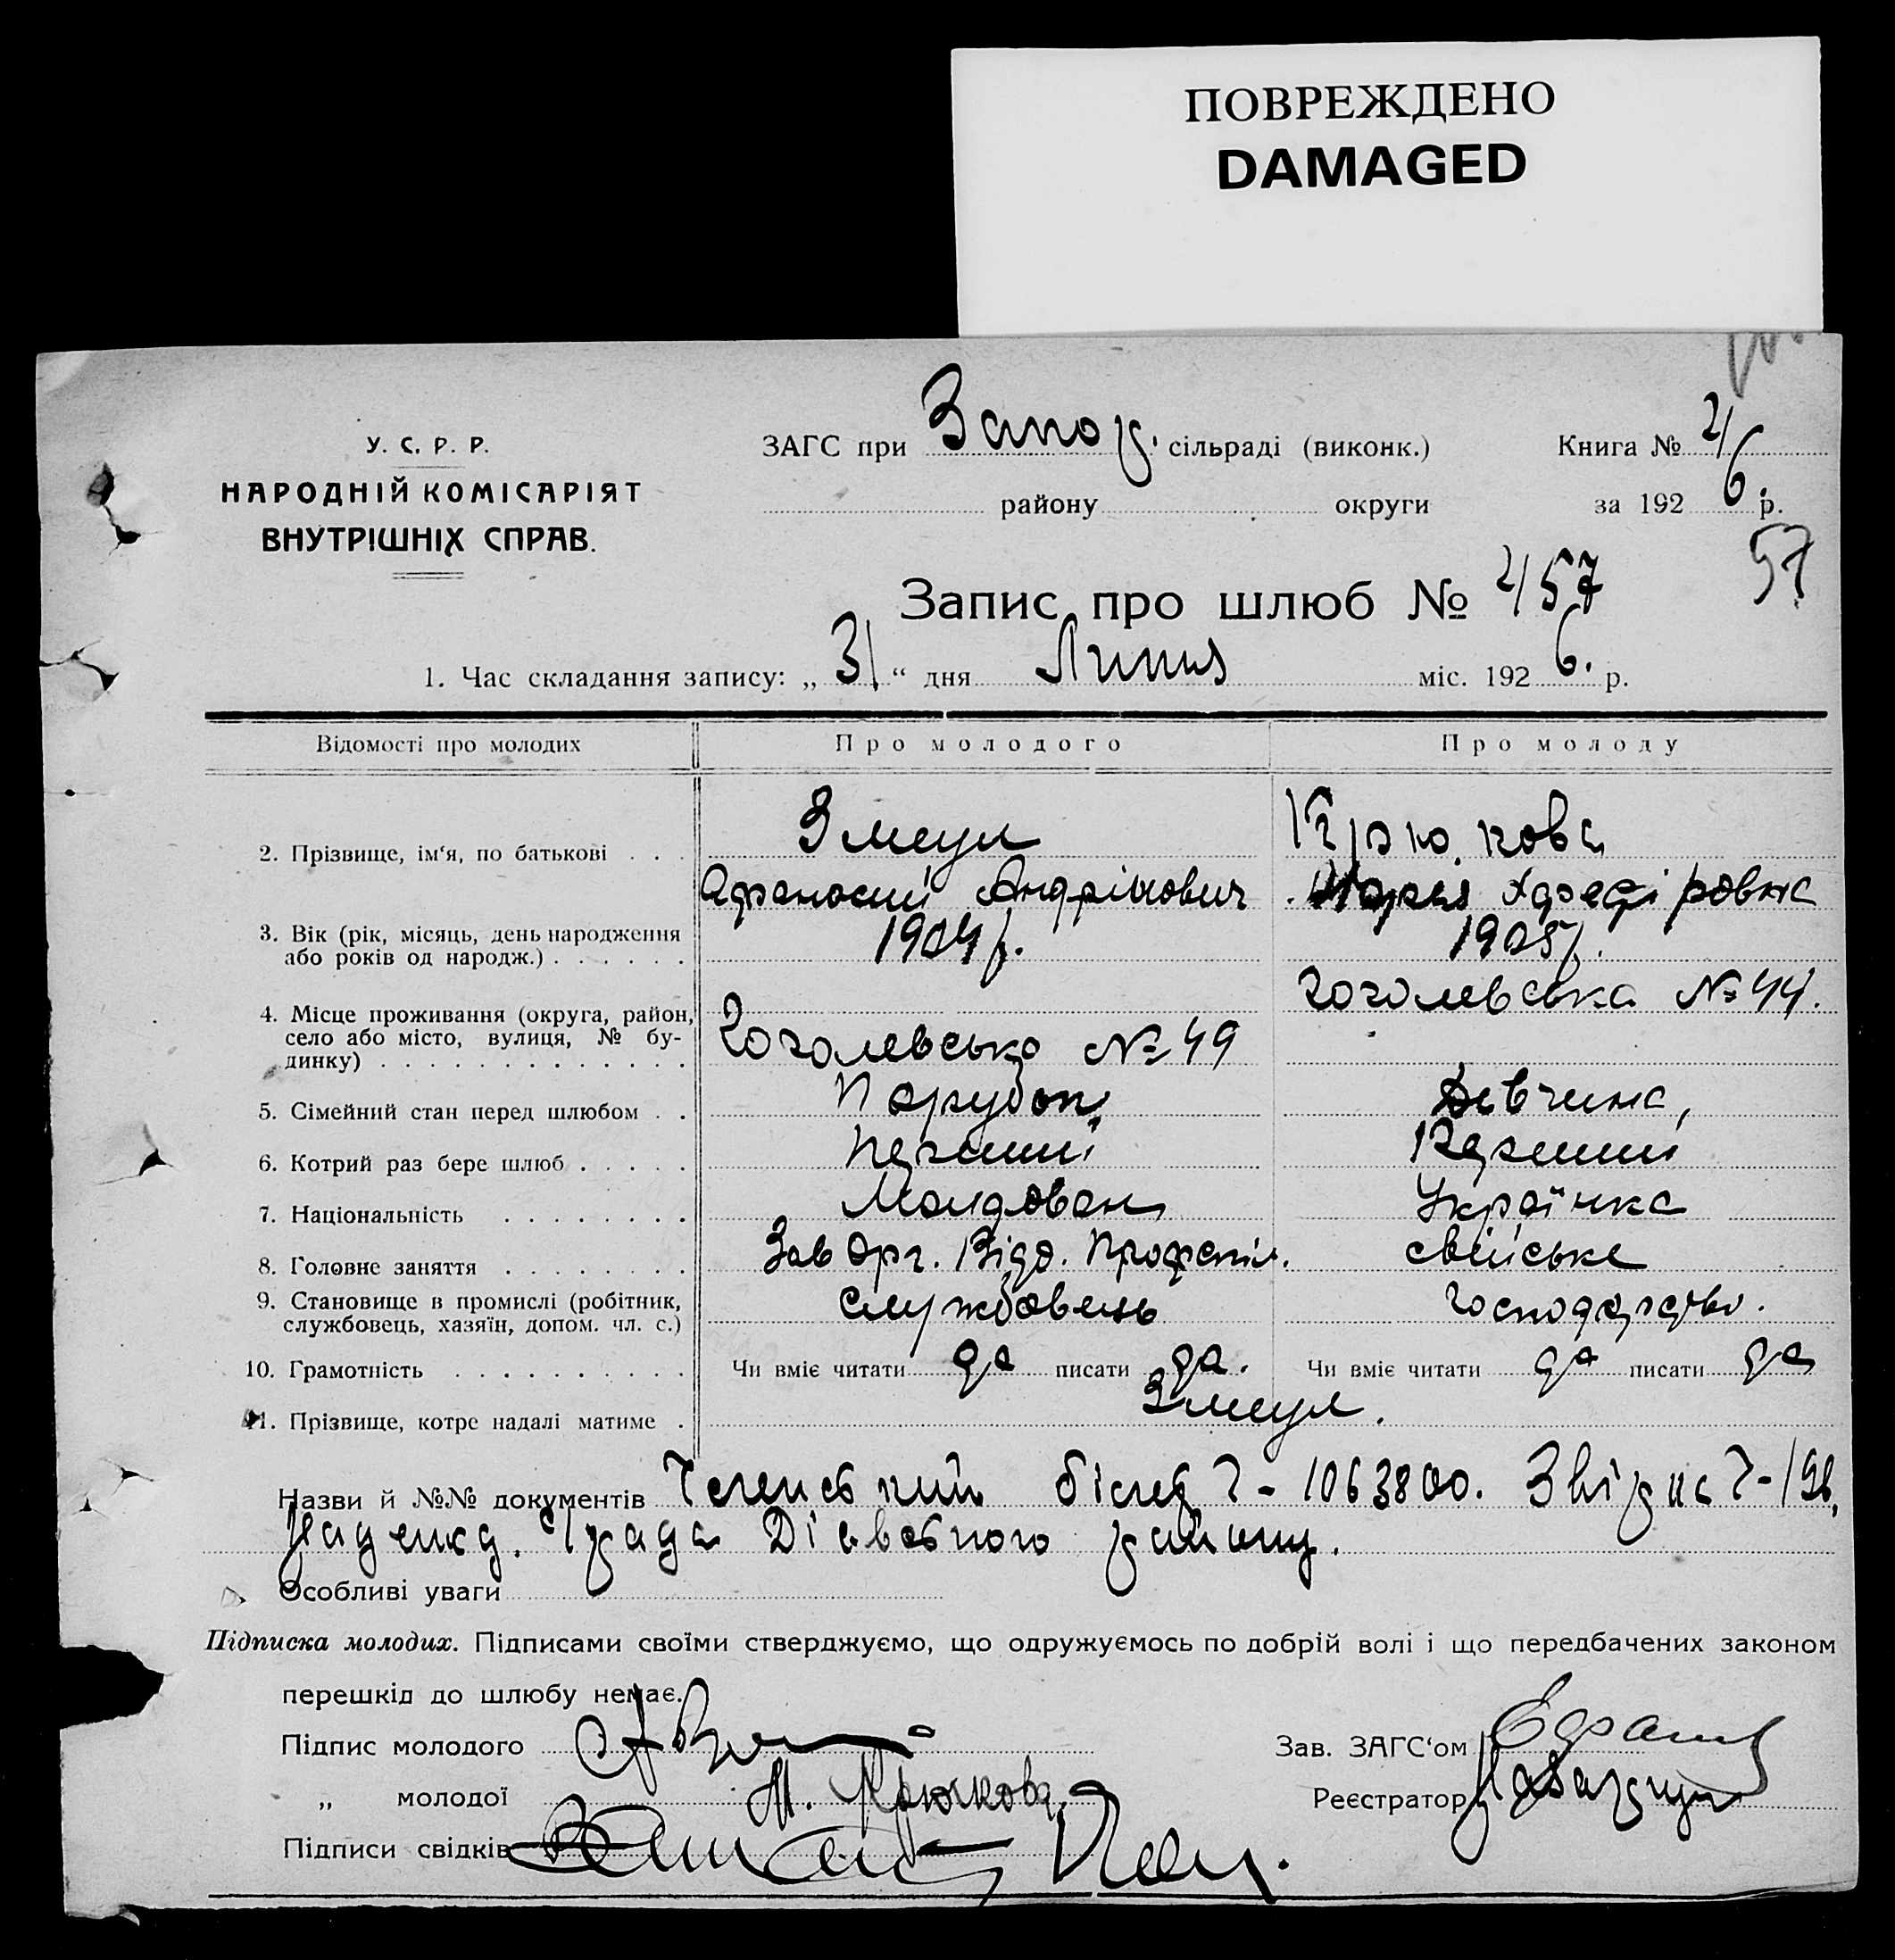 ПОВРЕЖДЕНО
DAMAGED
У. С. Р. Р.
НАРОДНІЙ КОМІСАРІЯТ
ВНУТРІШНІХ СПРАВ.
ЗАГС при Запор. сільраді (виконк.)
району округи
Книга № 4
за 1926. р.
57
Запис про шлюб № 457
1. Час складання запису: „31“ дня Липня міс. 1926. р.
Відомості про молодих Про молодого Про молоду
2. Прізвище, ім‘я, по батькові . . . Змеул Крюкова
Афанасий Андріянович Мария
3. Вік (рік, місяць, день народження
або років од народж.) . . . . . . 1904 р. 1905 р.
4. Місце проживання (округа, район,
село або місто, вулиця, № бу-
динку) . . . . . . . . . . . . . Гоголевсько № 49 Гоголевська № 44.
5. Сімейний стан перед шлюбом . . Парубок Девчина,
6. Котрий раз бере шлюб . . . . . Перший Перший
7. Національність . . . . . . . . Молдован Українка
8. Головне заняття . . . . . . . . Зав Орг. Відд. Профспіл. свійське
9. Становище в промислі (робітник,
службовець, хазяїн, допом. чл. с.) службовець господарство.
10. Грамотність . . . . . . . . . . Чи вміє читати да писати да. Чи вміє читати да писати да
11. Прізвище, котре надалі матиме . Змеул.
Назви й №№ документів Членський білет Ч-1063800.
району.
Особливі уваги
Підписка молодих. Підписами своїми стверджуємо, що одружуємось по добрій волі і що передбачених законом
перешкід до шлюбу немає.
Підпис молодого
„ молодої М. Крючкова
Підписи свідків
Зав. ЗАГС‘ом
Реєстратор